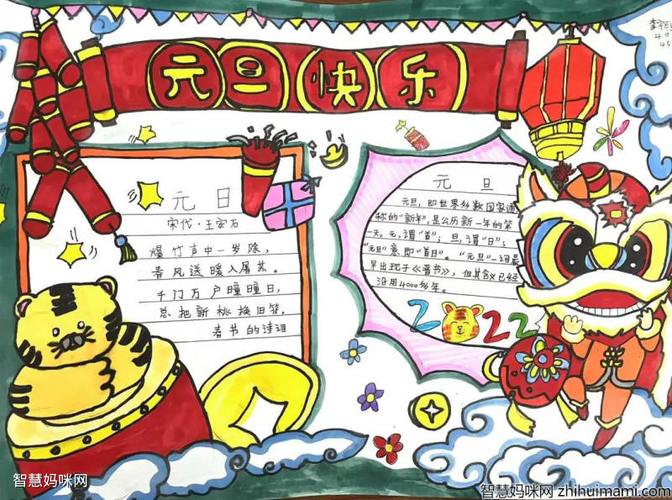 元旦快乐
元日
宋代·王安石
爆竹声中一岁除,
春风送暖入屠苏。
千门万户曈曈日,
总把新桃换旧符。
春节的诗词
元旦
元旦,即世界多数国家通
称的“新年”,是公历新一年的第
一天。元,谓“首”;旦,谓“日”;
“元旦”意即“首日”。“元旦”一词最
早出现于《晋书》,但其含义已经
沿用4000多年。
2022
智慧妈咪网
智慧妈咪网 zhihuimami.com